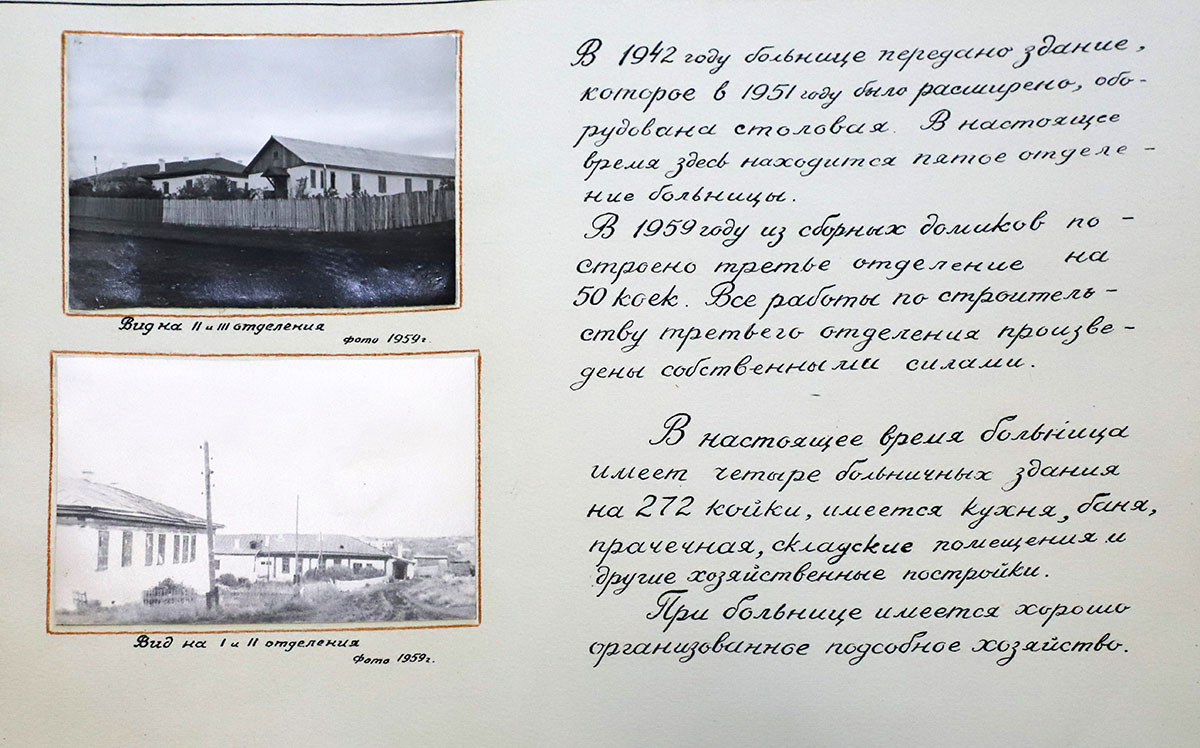 Вид на II и III отделения
фото 1959 г.
Вид на I и II отделения
фото 1959 г.
В 1942 году больнице передано здание,
которое в 1951 году было расширено, обо-
рудована столовая. В настоящее
время здесь находится пятое отделе-
ние больницы.
В 1959 году из сборных домиков по-
строено третье отделение на
50 коек. Все работы по строитель-
ству третьего отделения произве-
дены собственными силами.
В настоящее время больница
имеет четыре больничных здания
на 272 койки, имеется кухня, баня,
прачечная, складские помещения и
другие хозяйственные постройки.
При больнице имеется хорошо
организованное подсобное хозяйство.